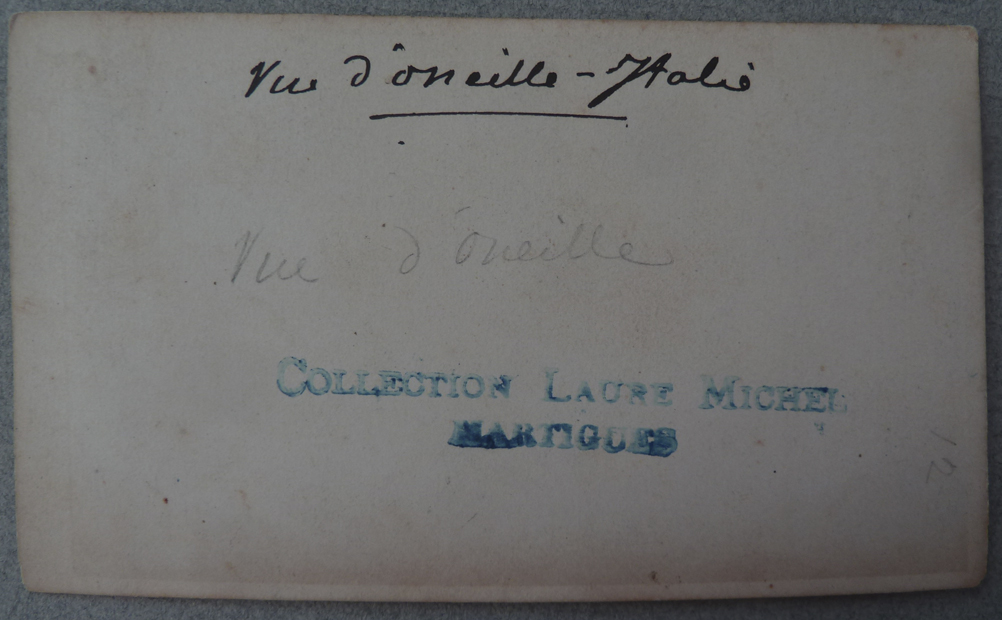 Vue d'oneille - Italie
Vue d'oneille
COLLECTION LAURE MICHEL
MARTIGUES
12